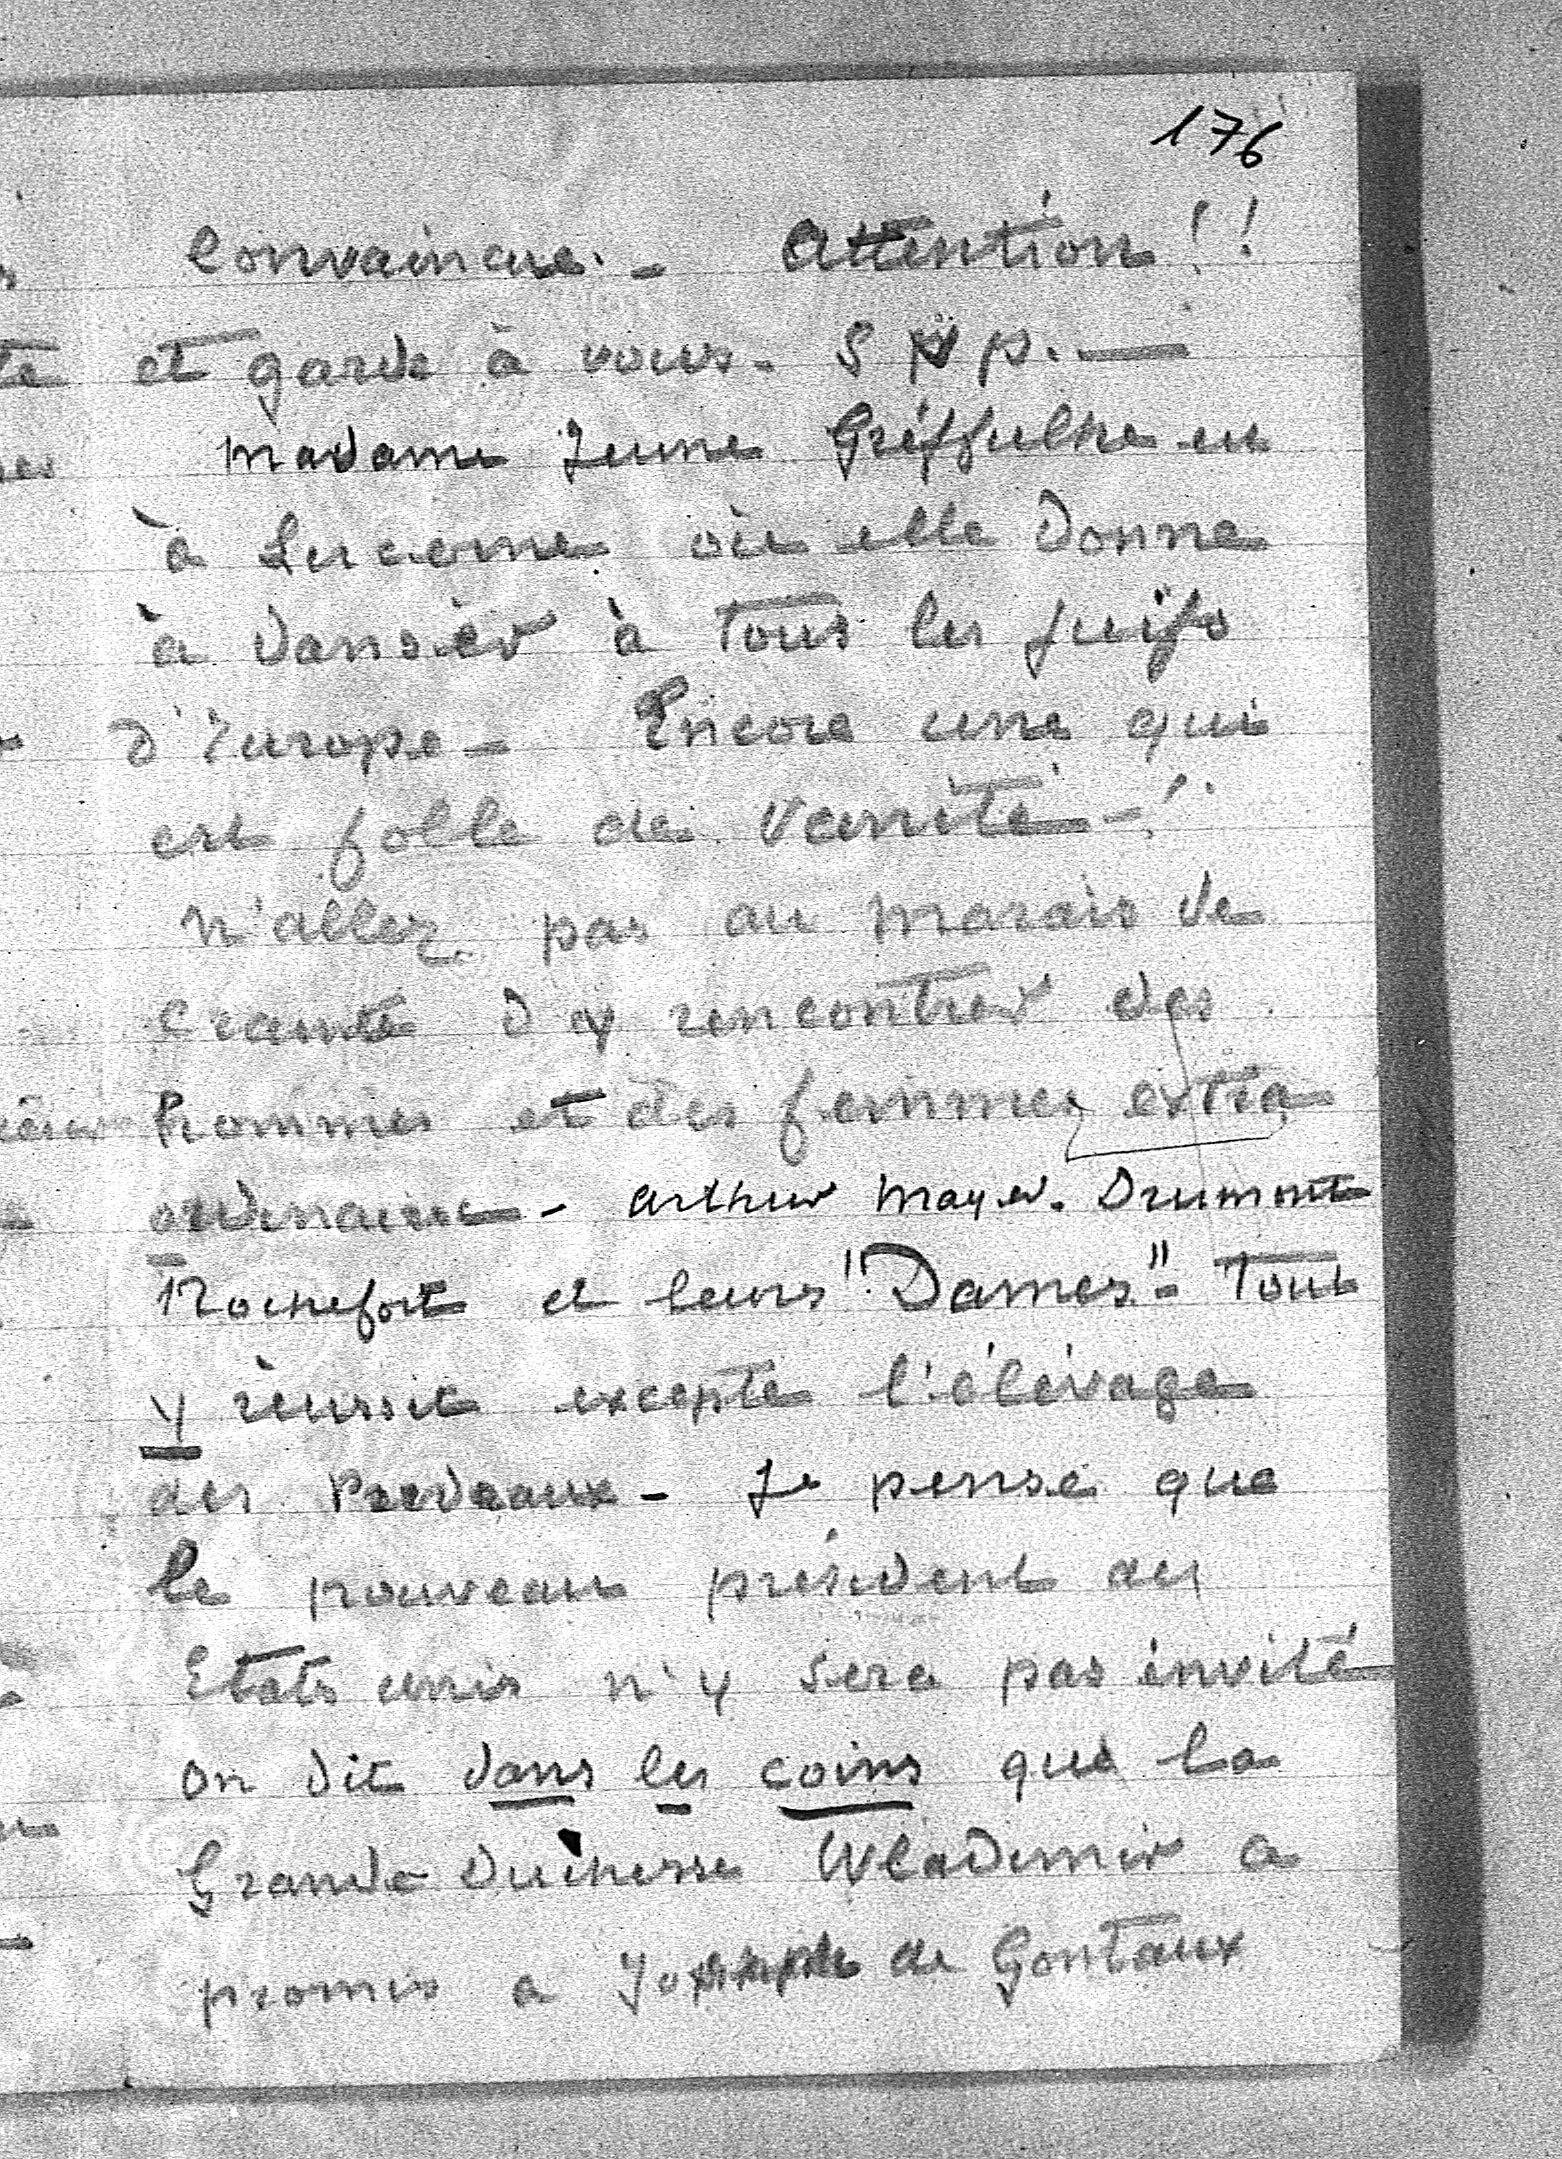 176
Convaincue. - Attention !!
et garde à vous. S p p. —
Madame Jeune Greffulhe est
à Lucerne où elle donne
à danser à tous les juifs
d'Europe - Encore une qui
est folle de vanité - !
N'allez pas au marais de
crainte d'y rencontrer des
hommes et des femmes extra
ordinaires - Arthur Mayer. Drumont
Rochefort et leurs "Dames" - Tout
y réussit excepté l'élévage
des Perdreaux - Je pense que
le nouveau président des
Etats unis n'y sera pas invité
on dit dans les coins que la
Grande Duchesse Wladimir a
promis a Joseph de Gontaux